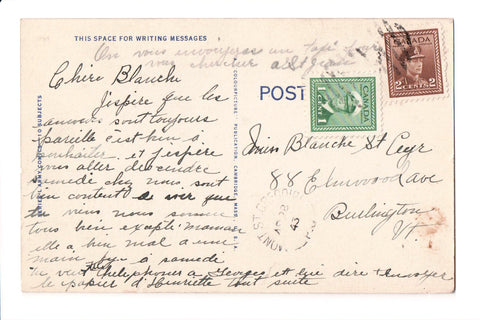 THIS SPACE FOR WRITING MESSAGES
On vous envoyera un taxi
vous chercher
Chère Blanche
J'espère que les
sont toujours
pareille c'est bien à
souhaiter et j'espère
vous allez descendre
samedi chez nous sont
bien content de voir que
tu viens nous somme
tous bien excepté maman
elle a bien mal a une
main a samedi
Je veux thelephoner a Georges et lui dire d'envoyer
le papier d'Henriette tout suite
POST
CANADA
1 CENT 1
CANADA
2 CENTS 2
AP 28
43
Miss Blanche St Cyr
88 Elmwood Ave
Burlington
Vt.